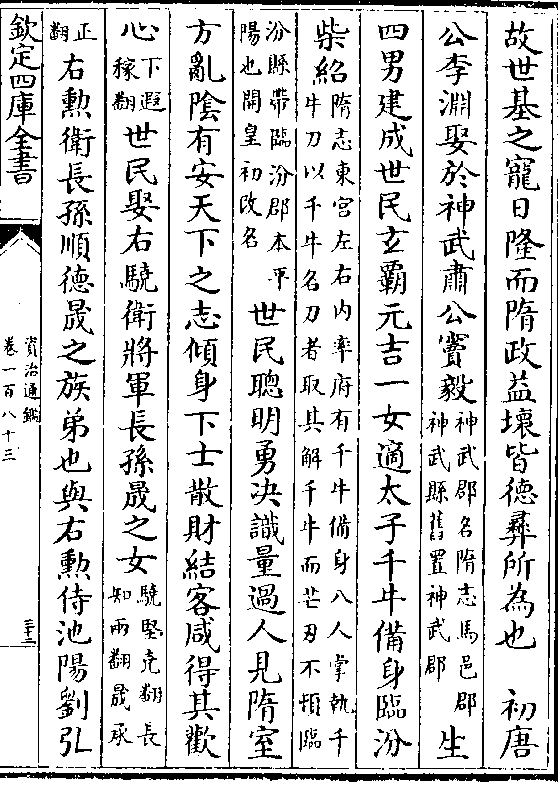 故世基之寵日隆而隋政益壞皆德彛所為也　初唐
公李淵娶於神武肅公竇毅神武郡名隋志馬邑郡神武縣舊置神武郡生
四男建成世民玄霸元吉一女適太子千牛備身臨汾
柴紹隋志東宮左右内率府有千牛備身八人掌執千牛刀以千牛名刀者取其解千牛而芒刃不頓臨
汾縣帶臨汾郡本平陽也開皇初改名世民聰明勇決識量過人見隋室
方亂陰有安天下之志傾身下士散財結客咸得其歡
心下遐稼翻世民娶右驍衛將軍長孫晟之女驍堅堯翻長知兩翻晟承
正翻右勲衛長孫順德晟之族弟也與右勲侍池陽劉弘
欽定四庫全書
資治通鑑
卷一百八十三